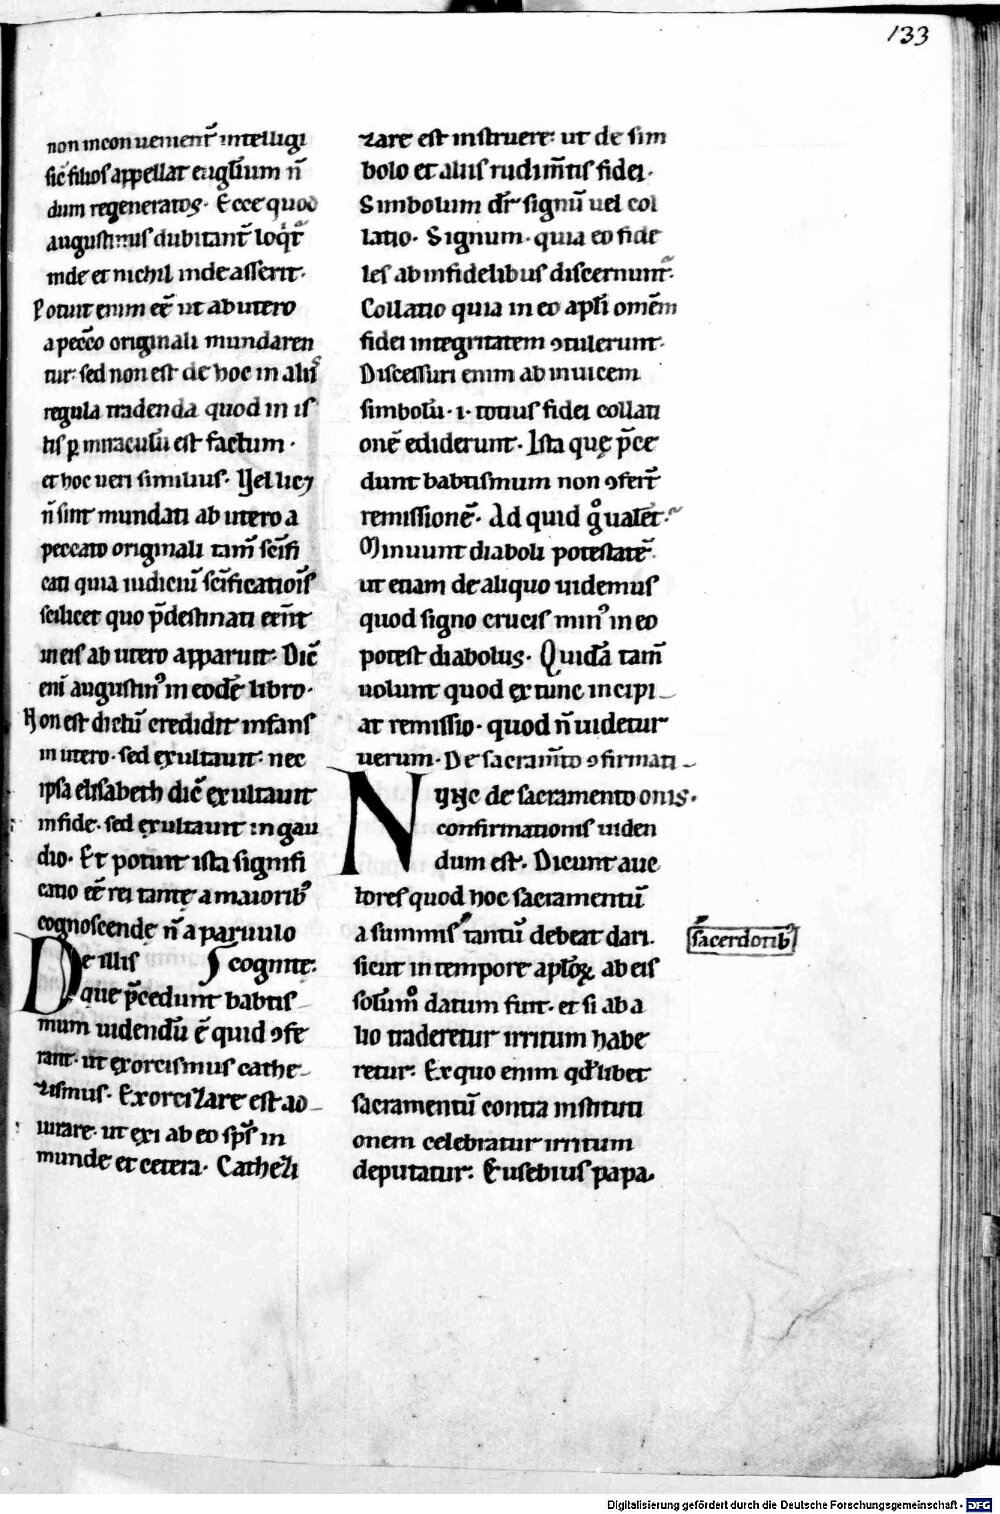 133
non inconuenient̄ intelligi
sic̄ filios appellat eugl̄ium n̄
dum regeneratos. Ecce quod
augustinus dubitant̄ loqͥt̄
inde et nichil inde asserit.
Potuit enim eē ut ab utero
a pecc̄o originali mundaren
tur: sed non est de hoc in aliiˢ
regula tradenda quod in is
tis ꝑ miraculū est factum.
et hoc ueri similius. Uel lic⁊
n̄ sint mundati ab utero a
peccato originali tam̄ sc̄ifi
cati quia iudiciū sc̄ificatiois̄
scilicet quo p̄destinati eēnt̄
in eis ab utero apparuit. Dic̄
eni augustinꝰ in eodē libro.
Non est dictū credidit infans
in utero. sed exultauit: nec
ipsa elisabeth dic̄ exultauit
in fide. sed exultauit in gau
dio. Et potuit ista signifi
catio eē rei tantę a maioribꝰ
cognoscendę n̄ a paruulo
De illis cognitę.
que p̄cedunt babtis
mum uidendū ē quid ꝯfe
rant. ut exorcismus cathe
zismus. Exorcizare est ad
iurare. ut exi ab eo sp̄s in
munde et cetera. Cathezi
zare est instruere. ut de sim
bolo et aliis rudim̄tis fidei.
Simbolum dr̄ signū uel col
latio. Signum. quia eo fide
les ab infidelibus discernunt̄.
Collatio quia in eo apl̄i omēm
fidei integritatem ꝯtulerunt.
Discessuri enim ab inuicem
simbolū .i. totius fidei collati
onē ediderunt. Ista quę p̄ce
dunt babtismum non ꝯfert̄
remissionē. Ad quid gͦ ualet̄.
Minuunt diaboli potestatē.
ut etiam de aliquo uidemus
quod signo crucis minꝰ in eo
potest diabolus. Quidā tam̄
uolunt quod ex tunc incipi
at remissio. quod n̄ uidetur
uerum. De sacram̄to ꝯfirmati
Nunc de sacramento onis.
confirmationis uiden
dum est. Dicunt auc
tores quod hoc sacramentū
a summis tantū debeat dari.
sacerdotibꝰ
sicut in tempore apl̄oꝝ ab eis
solum̊ datum fuit. et si ab a
lio traderetur irritum habe
retur. Ex quo enim qd̄libet
sacramentū contra instituti
onem celebratur irritum
deputatur. Eusebius papa.
Digitalisierung gefördert durch die Deutsche Forschungsgemeinschaft - DFG